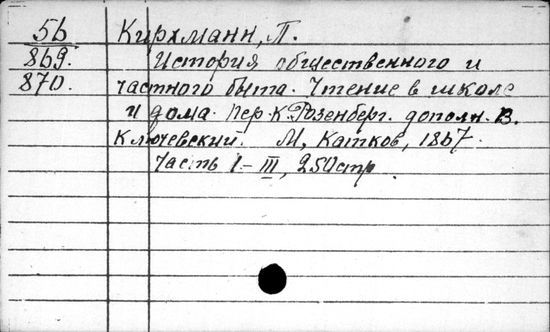 56 Кирхманн, П.
869. История общественного и
870. частного быта. Чтение в школе
и дома. Пер. К Розенберг. дополн. В.
Ключевский. М, Катков, 1867.
Часть I-III, 250 стр.